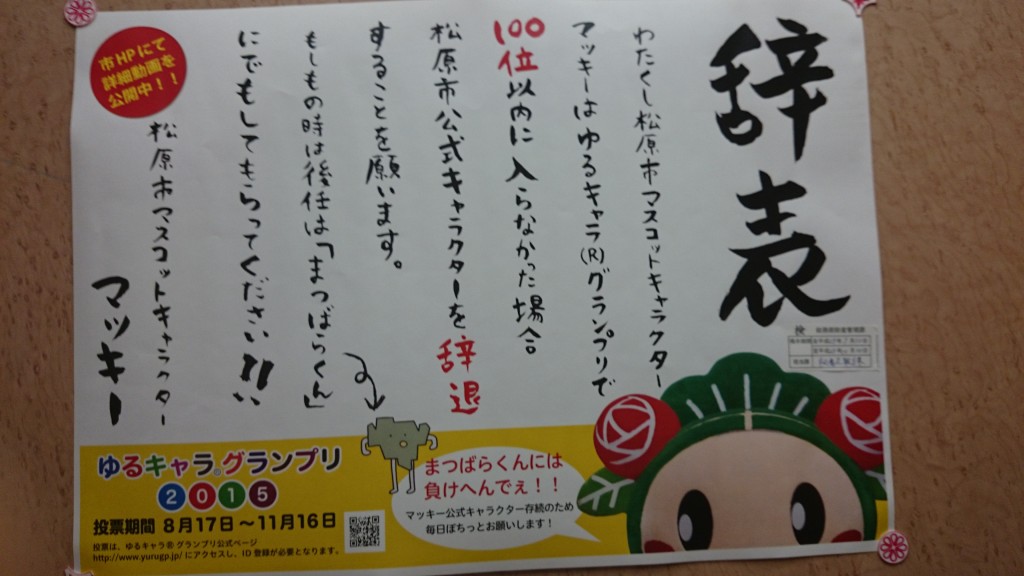 辞表
わたくし松原市マスコットキャラクター
マッキーはゆるキャラ(R)グランプリで
100位以内に入らなかった場合
松原市公式キャラクターを辞退
することを願います。
もしもの時は後任は「まつばらくん」
にでもしてもらってください!!
松原市マスコットキャラクター
マッキー
市HPにて
詳細動画を
公開中!!
ゆるキャラ®グランプリ
2015
投票期間 8月17日~11月16日
投票は、ゆるキャラ®グランプリ公式ページ
http://www.yurugp.jp/にアクセスし、ID登録が必要となります。
まつばらくんには
負けへんでぇ!!
マッキー公式キャラクター存続のため
毎日ぽちっとお願いします!